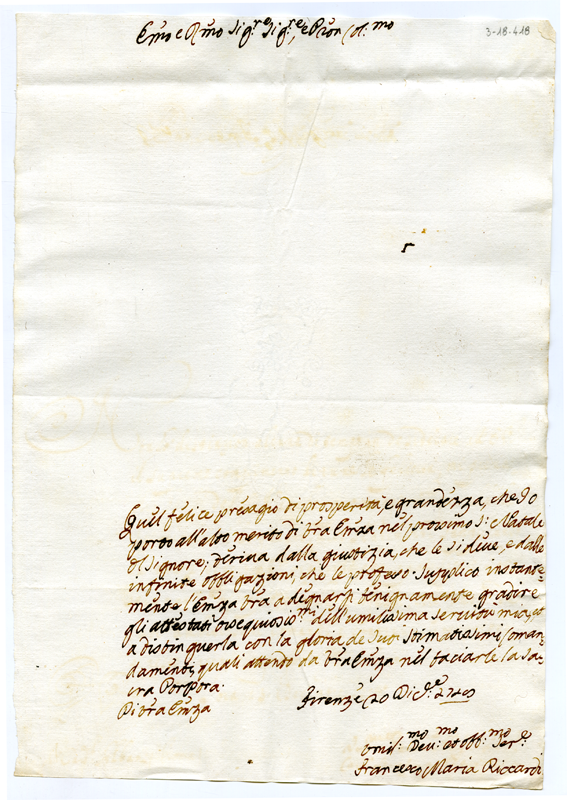 3-18-418
Emo e Rmo Sig.re Sig.re, e Pron Col.mo
Quel felice presagio di prosperità, e grandezza, che Io
porto all'alto merito di Vra Emza nel prossimo S: Natale
del Signore, deriva dalla giustizia, che le si deve, e dalle
infinite obbligazioni, che le professo. Supplico instante-
mente l'Emza Vra a degnarsi benignamente gradire
gli attestati ossequiosis.mi dell'umilissima servitù mia, et
a distinguerla con la gloria de Suoi Stimatissimi Coman
damenti, quali attendo da Vra Emza nel baciarle la Sa-
cra Porpora.
Firenze 20 Di
Di Vra Emza
Umil:mo Dev:mo et obb:mo Ser.e
Francesco Maria Riccardi